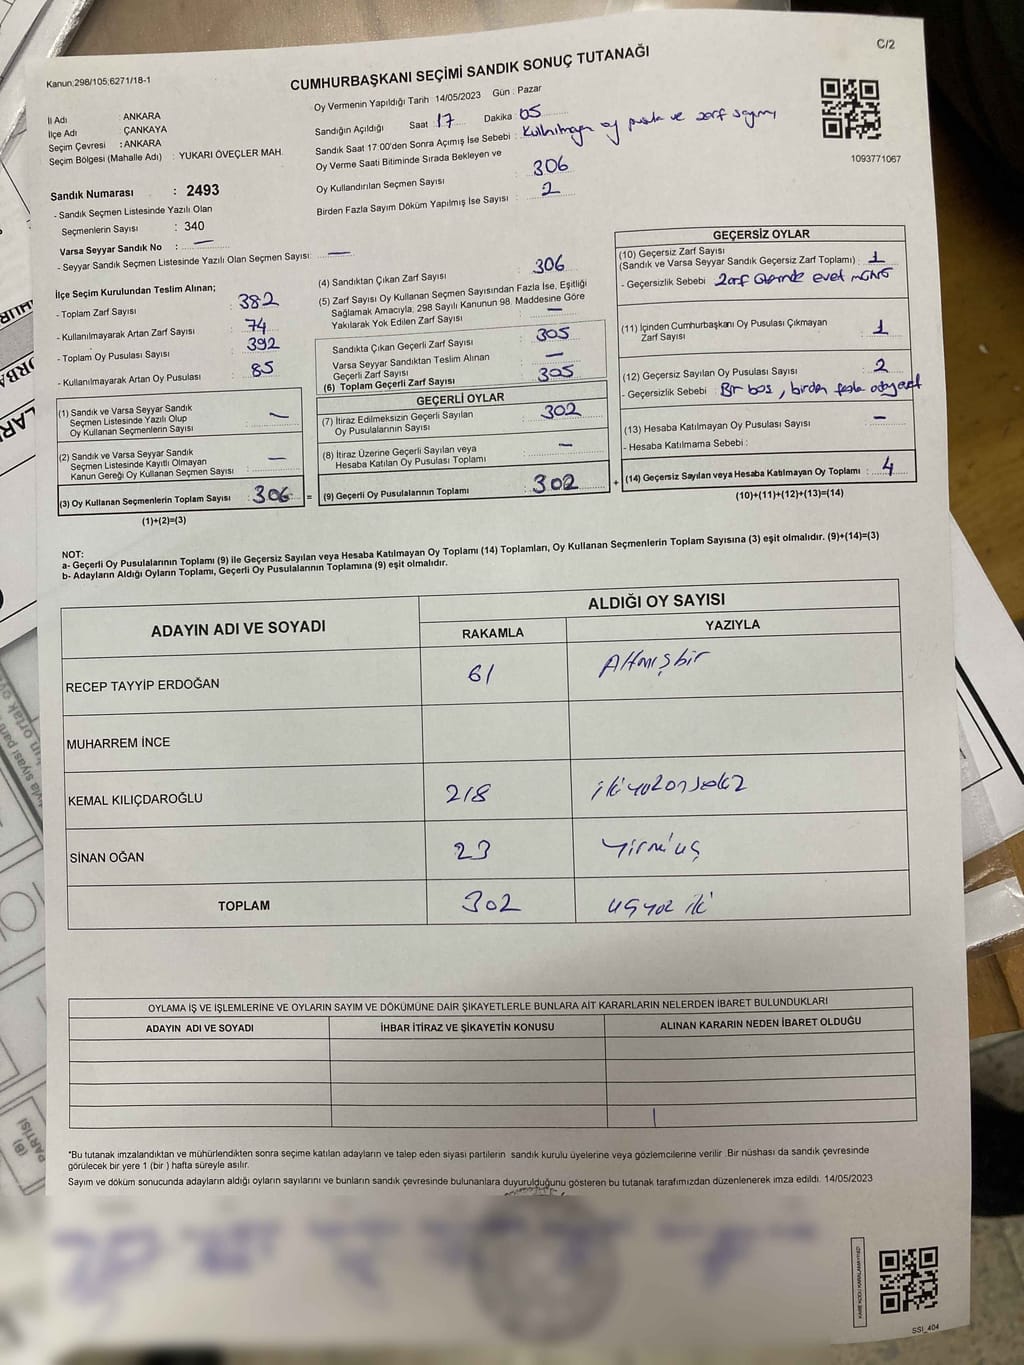 C/2
Kanun:298/105;6271/18-1
CUMHURBAŞKANI SEÇİMİ SANDIK SONUÇ TUTANAĞI
Oy Vermenin Yapıldığı Tarih 14/05/2023 Gün : Pazar
İl Adı : ANKARA
İlçe Adı : ÇANKAYA
Seçim Çevresi : ANKARA
Seçim Bölgesi (Mahalle Adı) : YUKARI ÖVEÇLER MAH.
Sandığın Açıldığı Saat 17 Dakika 05
Sandık Saat 17:00'den Sonra Açımış İse Sebebi : Kullnılmayan oy pusula ve zarf sayımı
Oy Verme Saati Bitiminde Sırada Bekleyen ve
Oy Kullandırılan Seçmen Sayısı : 306
Birden Fazla Sayım Döküm Yapılmış İse Sayısı : 2
1093771067
Sandık Numarası : 2493
- Sandık Seçmen Listesinde Yazılı Olan
Seçmenlerin Sayısı : 340
Varsa Seyyar Sandık No : —
- Seyyar Sandık Seçmen Listesinde Yazılı Olan Seçmen Sayısı: —
İlçe Seçim Kurulundan Teslim Alınan;
- Toplam Zarf Sayısı : 382
- Kullanılmayarak Artan Zarf Sayısı : 74
- Toplam Oy Pusulası Sayısı : 392
- Kullanılmayarak Artan Oy Pusulası : 85
(1) Sandık ve Varsa Seyyar Sandık
Seçmen Listesinde Yazılı Olup
Oy Kullanan Seçmenlerin Sayısı : —
(2) Sandık ve Varsa Seyyar Sandık
Seçmen Listesinde Kayıtlı Olmayan
Kanun Gereği Oy Kullanan Seçmen Sayısı : —
(3) Oy Kullanan Seçmenlerin Toplam Sayısı : 306 =
(1)+(2)=(3)
(4) Sandıktan Çıkan Zarf Sayısı : 306
(5) Zarf Sayısı Oy Kullanan Seçmen Sayısından Fazla İse, Eşitliği
Sağlamak Amacıyla, 298 Sayılı Kanunun 98. Maddesine Göre
Yakılarak Yok Edilen Zarf Sayısı : —
Sandıkta Çıkan Geçerli Zarf Sayısı : 305
Varsa Seyyar Sandıktan Teslim Alınan
Geçerli Zarf Sayısı : —
(6) Toplam Geçerli Zarf Sayısı : 305
GEÇERLİ OYLAR
(7) İtiraz Edilmeksizin Geçerli Sayılan
Oy Pusulalarının Sayısı : 302
(8) İtiraz Üzerine Geçerli Sayılan veya
Hesaba Katılan Oy Pusulası Toplamı : —
(9) Geçerli Oy Pusulalarının Toplamı : 302 +
GEÇERSİZ OYLAR
(10) Geçersiz Zarf Sayısı
(Sandık ve Varsa Seyyar Sandık Geçersiz Zarf Toplamı) : 1
- Geçersizlik Sebebi : Zarf üzerinde evet mührü
(11) İçinden Cumhurbaşkanı Oy Pusulası Çıkmayan
Zarf Sayısı : 1
(12) Geçersiz Sayılan Oy Pusulası Sayısı : 2
- Geçersizlik Sebebi : Bir boş, birden fazla adaya evet
(13) Hesaba Katılmayan Oy Pusulası Sayısı : —
- Hesaba Katılmama Sebebi :
(14) Geçersiz Sayılan veya Hesaba Katılmayan Oy Toplamı : 4
(10)+(11)+(12)+(13)=(14)
NOT:
a- Geçerli Oy Pusulalarının Toplamı (9) ile Geçersiz Sayılan veya Hesaba Katılmayan Oy Toplamı (14) Toplamları, Oy Kullanan Seçmenlerin Toplam Sayısına (3) eşit olmalıdır. (9)+(14)=(3)
b- Adayların Aldığı Oyların Toplamı, Geçerli Oy Pusulalarının Toplamına (9) eşit olmalıdır.
ADAYIN ADI VE SOYADI
ALDIĞI OY SAYISI
RAKAMLA YAZIYLA
RECEP TAYYİP ERDOĞAN 61 Altmışbir
MUHARREM İNCE
KEMAL KILIÇDAROĞLU 218 ikiyüzonsekiz
SİNAN OĞAN 23 Yirmiüç
TOPLAM 302 üçyüz iki
OYLAMA İŞ VE İŞLEMLERİNE VE OYLARIN SAYIM VE DÖKÜMÜNE DAİR ŞİKAYETLERLE BUNLARA AİT KARARLARIN NELERDEN İBARET BULUNDUKLARI
ADAYIN ADI VE SOYADI İHBAR İTİRAZ VE ŞİKAYETİN KONUSU ALINAN KARARIN NEDEN İBARET OLDUĞU
*Bu tutanak imzalandıktan ve mühürlendikten sonra seçime katılan adayların ve talep eden siyasi partilerin sandık kurulu üyelerine veya gözlemcilerine verilir .Bir nüshası da sandık çevresinde
görülecek bir yere 1 (bir ) hafta süreyle asılır.
Sayım ve döküm sonucunda adayların aldığı oyların sayılarını ve bunların sandık çevresinde bulunanlara duyurulduğunu gösteren bu tutanak tarafımızdan düzenlenerek imza edildi. 14/05/2023
KARE KODU KARALAMAYINIZ!
SSI_404
(B)
PARTİSİ